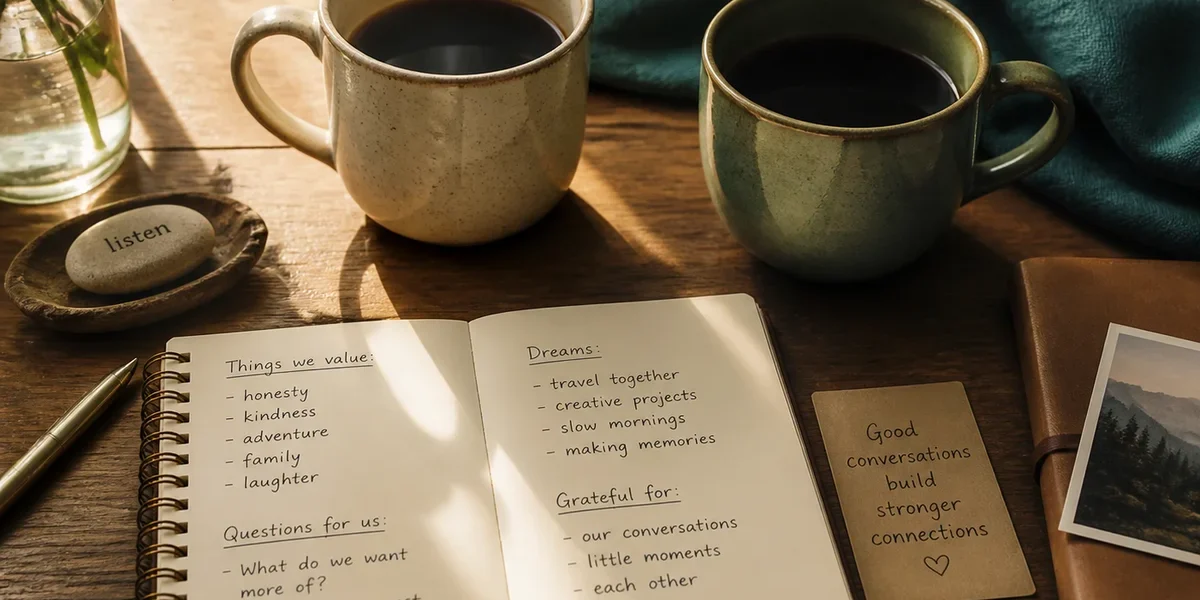 listen
Things we value:
- honesty
- kindness
- adventure
- family
- laughter
Questions for us:
- What do we want
more of?
Dreams:
- travel together
- creative projects
- slow mornings
- making memories
Grateful for:
- our conversations
- little moments
- each other
Good
conversations
build
stronger
connections
♡